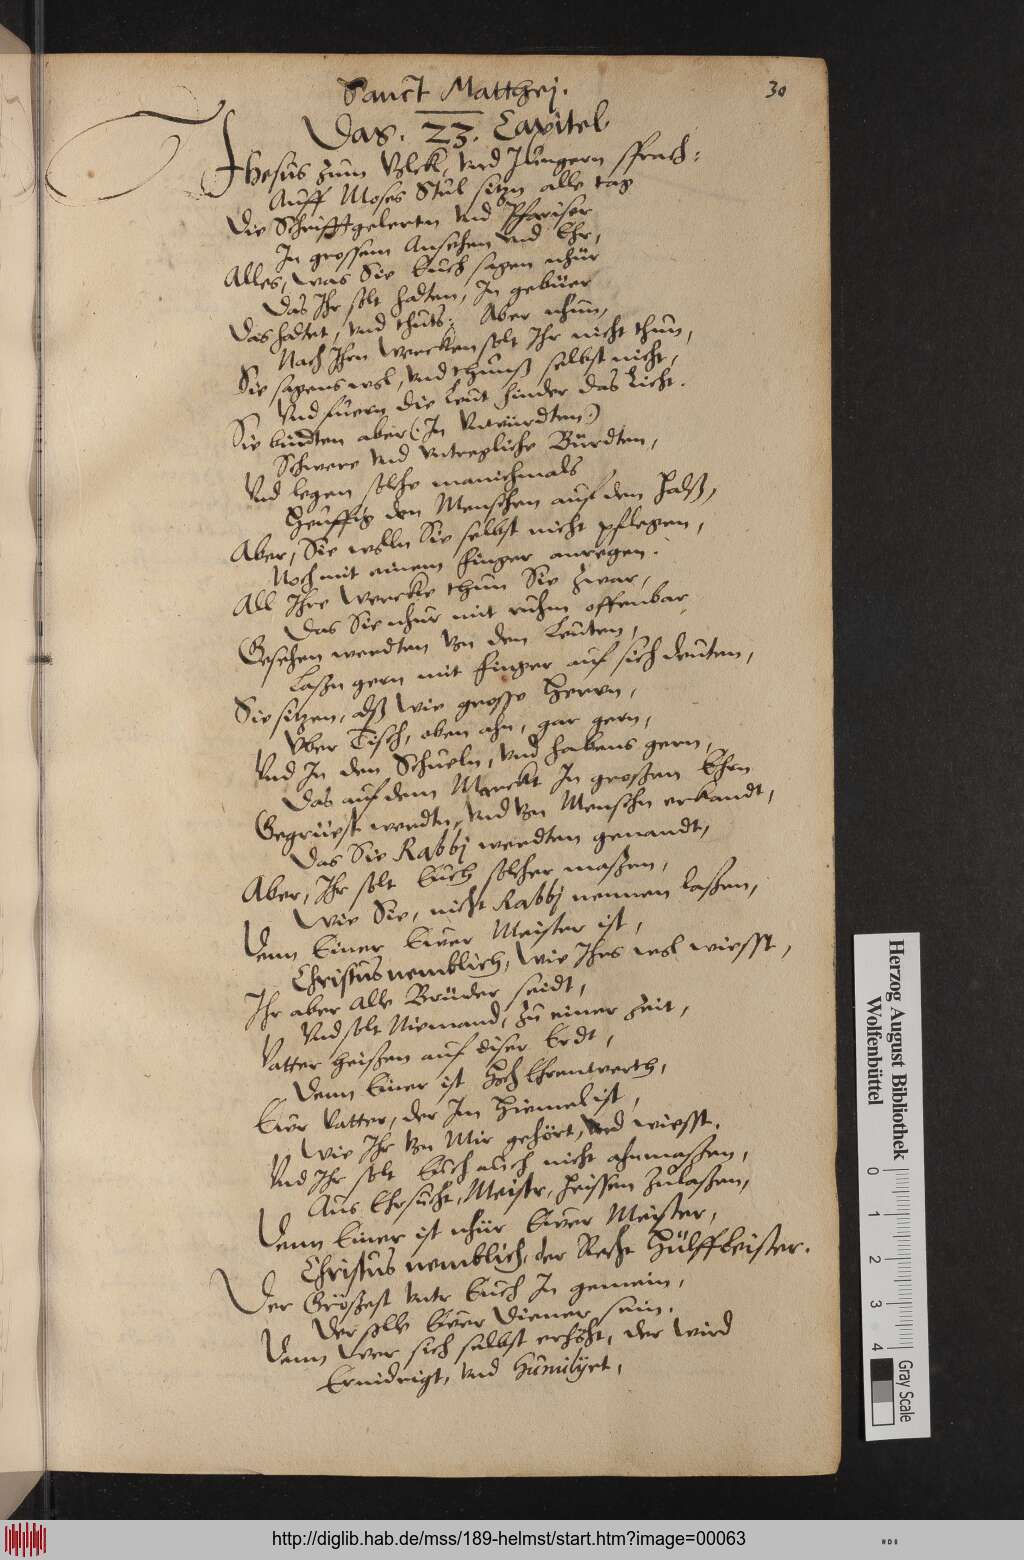 30
Sanct Matthej.
Das. 23. Capitel.
Jhesus zum Volck, vnd Jüngern sprach:
Auff Moses Stul sitzn alle tag
Die Schrifftgelertn vnd Phariser
In grossem Ansehen vnd Ehr,
Alles, was Sie Euch sagen nhür
Das Ihr solt haltten, In gebüer
Das haltet, vnd thuts: Aber nhun,
Nach Ihrn Wercken solt Ihr nicht thun,
Sie sagens wol, vnd thuns selbst nicht,
Vnd fuern die Leut hinder das Licht.
Sie bindten aber (: In
Schwere vnd vntregliche Bürdten,
Vnd legen solche manichmals
Heuffig den Menschen auf den Halß,
Aber, Sie wolln Sie selbst nicht pflegen,
Noch mit einem finger anregen.
All Ihre Wercke thun Sie zwar,
Das Sie nhur mit ruhm offenbar
Gesehen werdten von den Leuten,
Laßn gern mit finger auf sich deuten,
Sie sitzen, alß wie grosse Herrn,
Vber Tisch, oben ahn, gar gern,
Vnd In den Schueln, vnd habens gern,
Das auf dem Marckt In großen Ehrn
Gegrüest werdtn, vnd von Menschn erkandt,
Das Sie Rabbj werdten genandt,
Aber, Ihr solt Euch solcher maßen,
Wie Sie, nicht Rabbj nennen laßen,
Denn Einer Ewer Meister ist,
Christus nemblich, Wie Ihrs wol wiesst,
Ihr aber Alle Brüder seidt,
Vnd solt Niemand, zu einer Zeit,
Vatter heißen auf diser Erdt,
Denn Einer ist hoch Ehrenwerth,
Ewr Vatter, der Im Himel ist,
Wie Ihr von Mir gehört, vnd wiesst.
Vnd Ihr solt Euch auch nicht ahnmaßen,
Aus Ehrsucht, Meistr, heissen zulaßen,
Denn Einer ist nhür Ewer Meister,
Christus nemblich, der Recht Hülffleister.
Der Größest vntr Euch In gemein,
Der solle Ewer Diener sein.
Denn Wer sich selbst erhöht, der wird
Ernidrigt, vnd Humilyrt,
Herzog August Bibliothek
Wolfenbüttel
0 1 2 3 4
Gray Scale
http://diglib.hab.de/mss/189-helmst/start.htm?image=00063